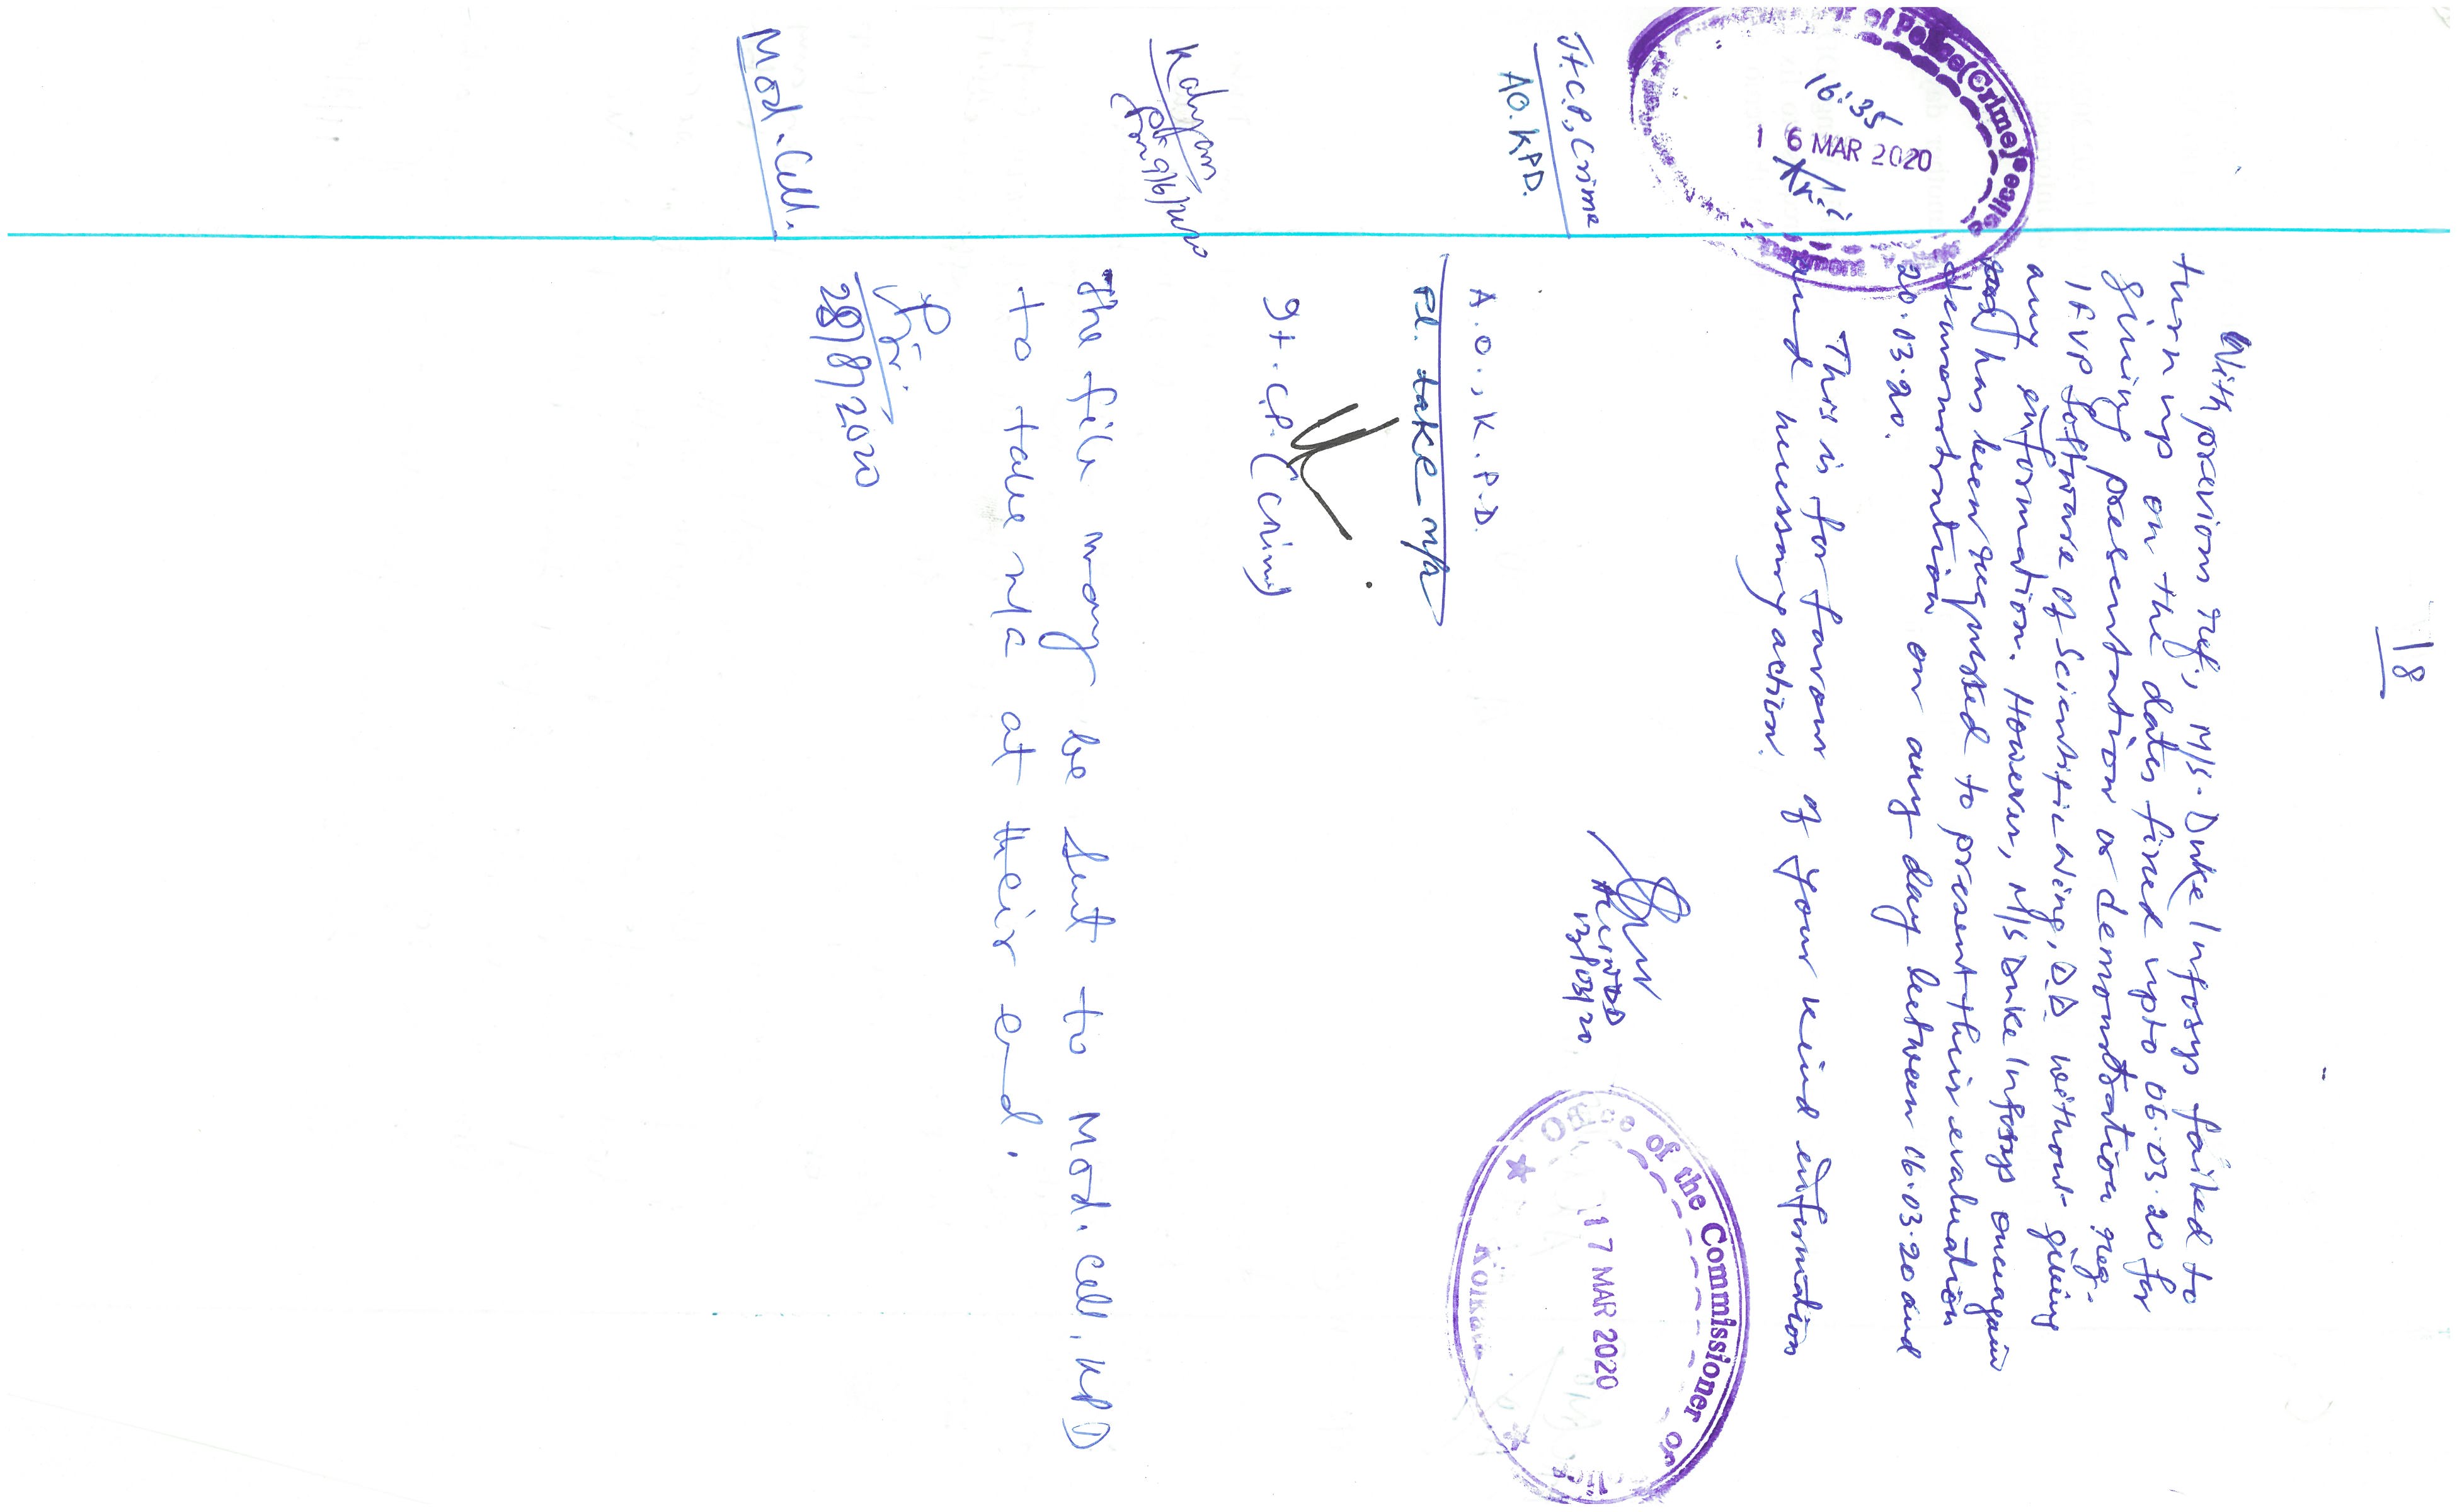 18
With previous ref., M/S. Duke Infosys failed to
turn up on the dates fixed upto 06.03.20 for
giving presentation or demonstration reg.
IFVP Software of Scientific Wing, D.D. without giving
any information. However, M/S Duke Infosys onceagain
has been requested to present their evaluation
demonstration on any day between 16.03.20 and
20.03.20.
This is for favour of your kind information
and necessary action.
of Police (Crime)
16:35
16 MAR 2020
13/03/20
Office of the Commissioner of
17 MAR 2020
Kolkata
Jt. C.P., Crime
AO. KPD.
A.O., K.P.D.
Pl. take n/a
Jt. C.P. (Crime)
Kalyan
9/6/2020
The file may be sent to Mod. Cell, KPD
to take n/a at their end.
28/8/2020
Mod. Cell.